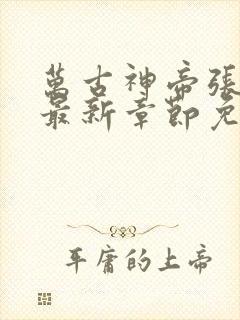 萬古神帝張
最新章節免
平庸的上帝